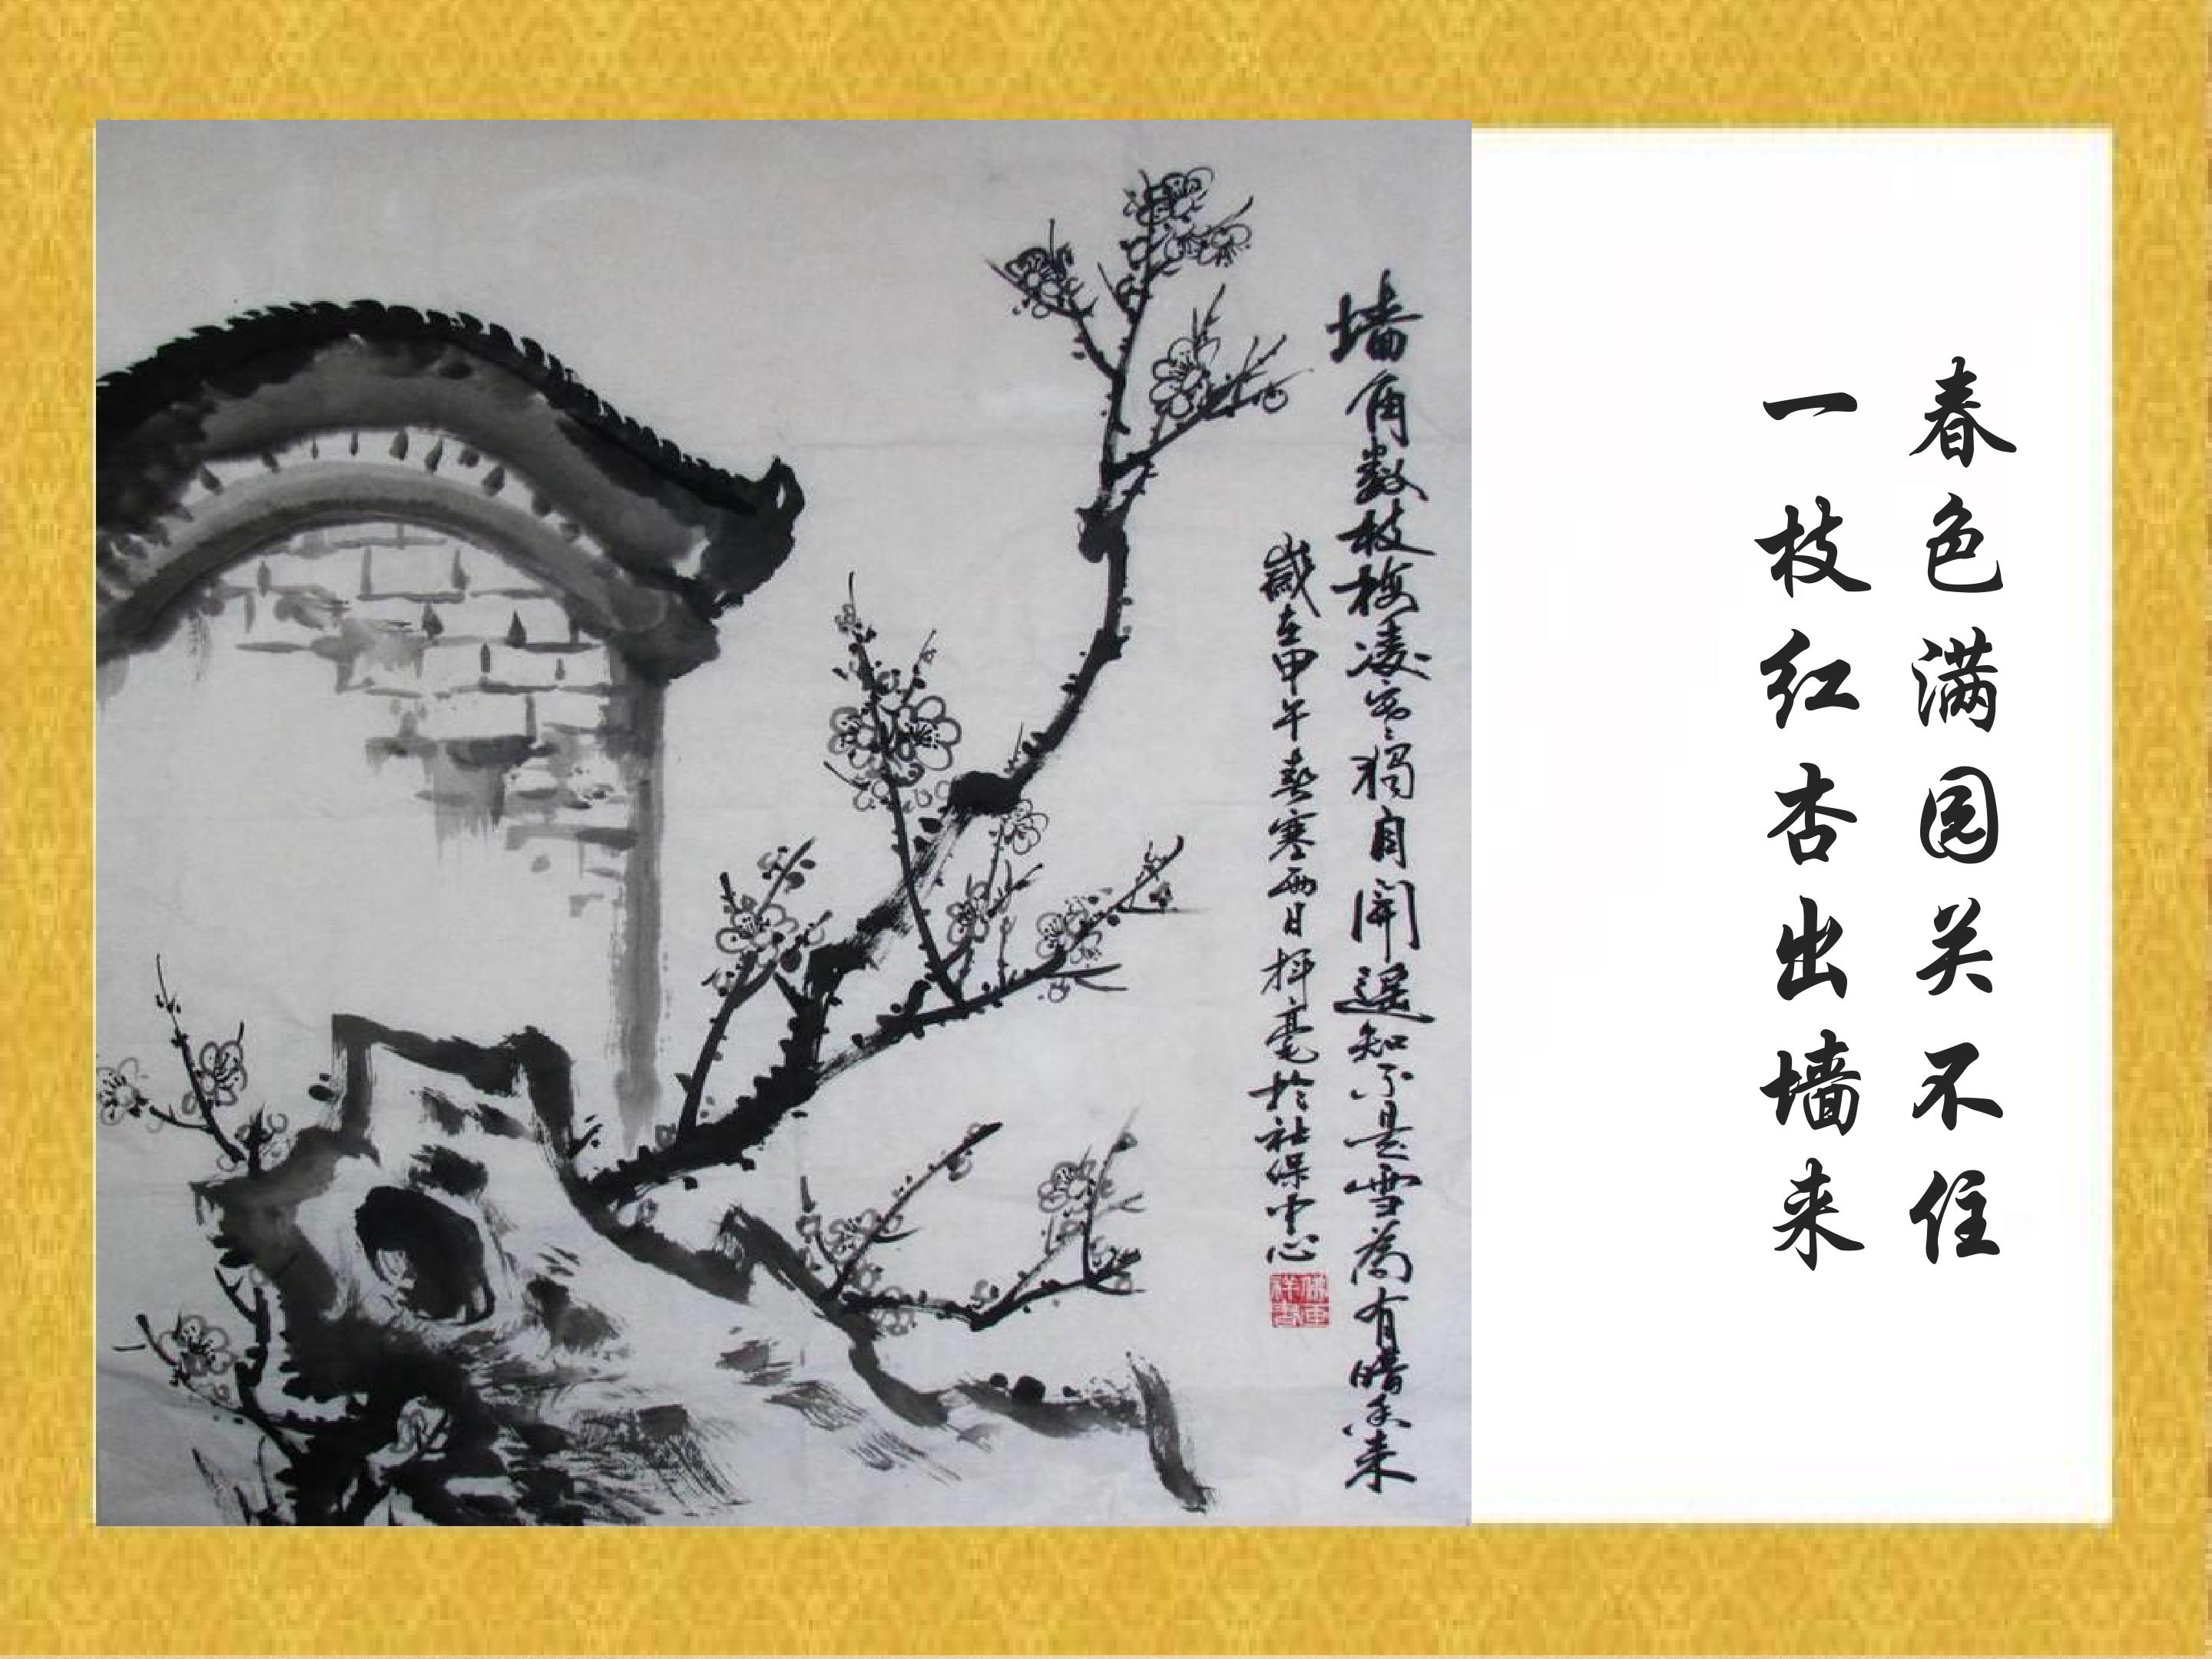 春色满园关不住
一枝红杏出墙来
墙角数枝梅凌寒獨自開遥知不是雪為有暗香来
歲在甲午春寒雨日挥毫於社保中心